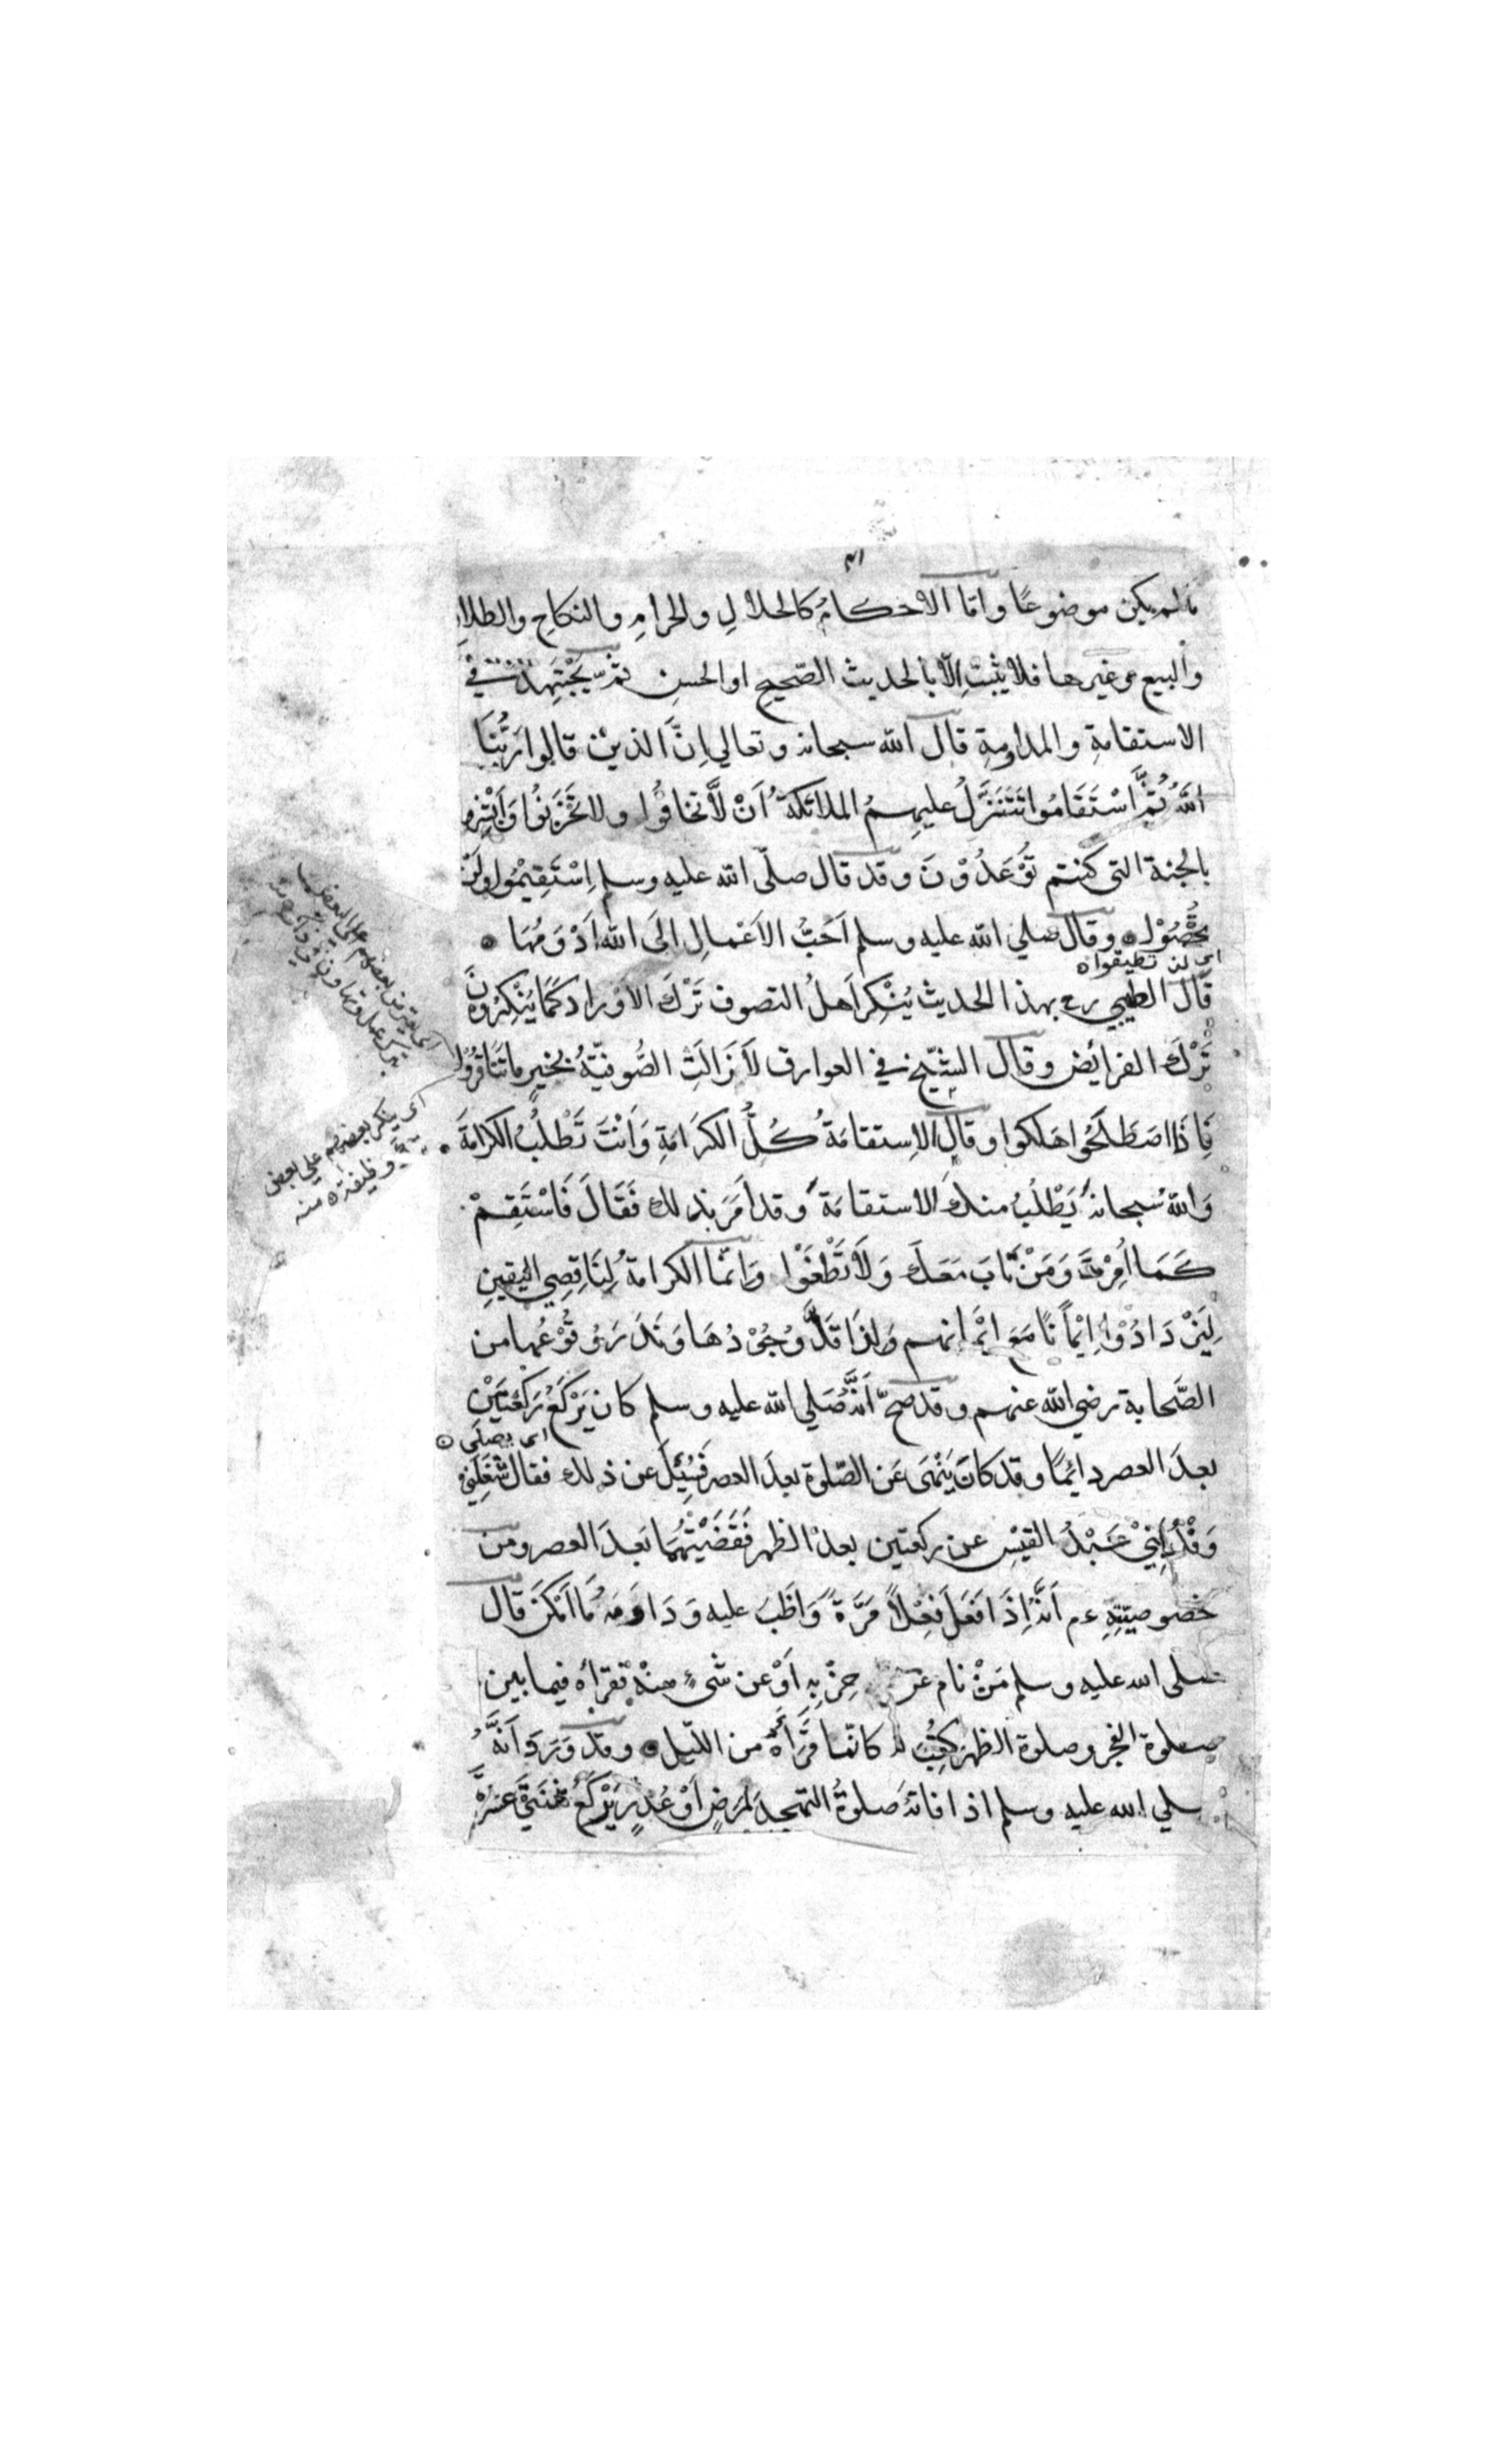 ما لم يكن موضوعًا واما الاحكامُ كالحلالِ والحرامِ والنكاحِ والطلاق
والبيع وغيرها فلا يثبت اِلّا بالحديث الصّحيحِ او الحسنِ ثمّ يَجْتَهِدُ في
الاستقامةِ والمداومةِ قال الله سبحانه وتعالي اِنَّ الذينْ قالوا رَبُّنَا
اللهُ ثُمَّ اسْتَقَامُوا تَتَنَزَّلُ عليهِمُ الملائكةُ اَنْ لَّا تخافُوا ولا تَحْزَنُوا وَاَبْشِرُوا
بالجنة التي كنتم تُوْعَدُوْنَ وقد قال صلّي الله عليه وسلم اِسْتَقِيْمُوا ولَنْ
تُحْصُوْا وقال صلي الله عليه وسلم اَحَبُّ الاَعْمالِ اِلَى اللهِ اَدْوَمُهَا
اي لن تطيقوا
قَالَ الطيبي رح بهذا الحديث يُنْكِرُ اَهلُ التصوف تَرْكَ الاَوْرادِ كَمَا يُنْكِرُوْنَ
تَرْكَ الفرائض وقال الشيخ في العوارف لَا زَالَتِ الصُّوفيّةُ بخيرٍ ما تَنَاقَرُوْا
فَاِذَا اصْطَلَحُوا هَلَكوا وقال الاِستقامَةُ كُلُّ الكَرَامَةِ وَاَنْتَ تَطْلُبُ الكَرَامَةَ
وَاللهُ سُبحانه يَطْلُبُ منك الاستقامَةَ وقد اَمَرَ بذلك فَقَالَ فَاسْتَقِمْ
كَمَا اُمِرْتَ وَمَنْ تَابَ مَعَكَ وَلَا تَطْغَوْا وَانّما الكرامةُ لِنَاقِصِي اليقينِ
لِيَزْدَادُوْا اِيْمَانًا مَعَ اِيْمَانهم وَلِذَا قَلَّ وُجُوْدُهَا وَنَدَرَ وُقُوْعُها من
الصَّحابة رضي الله عنهم وقد صحّ اَنَّهُ صَلي الله عليه وسلم كان يَرْكَعُ رَكْعَتَيْنِ
اى يصلى
بعدَ العصر دائمًا وقد كانَ يَنْهَى عَنِ الصّلوة بعدَ العصر فَسُئِلَ عن ذلك فقال شَغَلَنِي
وَفْدُ عَبْدِ القَيْسِ عن ركعتين بعدَ الظهر فَقَضَيْتُهُمَا بَعدَ العصر ومن
خصوصيّتِهِ عم اَنَّهُ اِذَا فَعَلَ فِعْلاً مَرَّةً وَاظَبَ عليه وَدَاوَمَهُ مَا اَمْكَنَ قال
صلى الله عليه وسلم مَنْ نام عن حِزْبِهِ اَوْ عن شئٍ منهُ فقرأه فيما بين
صلوة الفجر وصلوة الظهر كُتِبَ له كانّما قَرَأَهُ من اللّيل وقد وَرَدَ اَنَّهُ
صلي الله عليه وسلم اذا فاته صَلوةُ التهجد لِمَرَضٍ اَوْ عُذْرٍ يَرْكَعُ
اى ينكر بعضهم على بعض
وظيفته منه